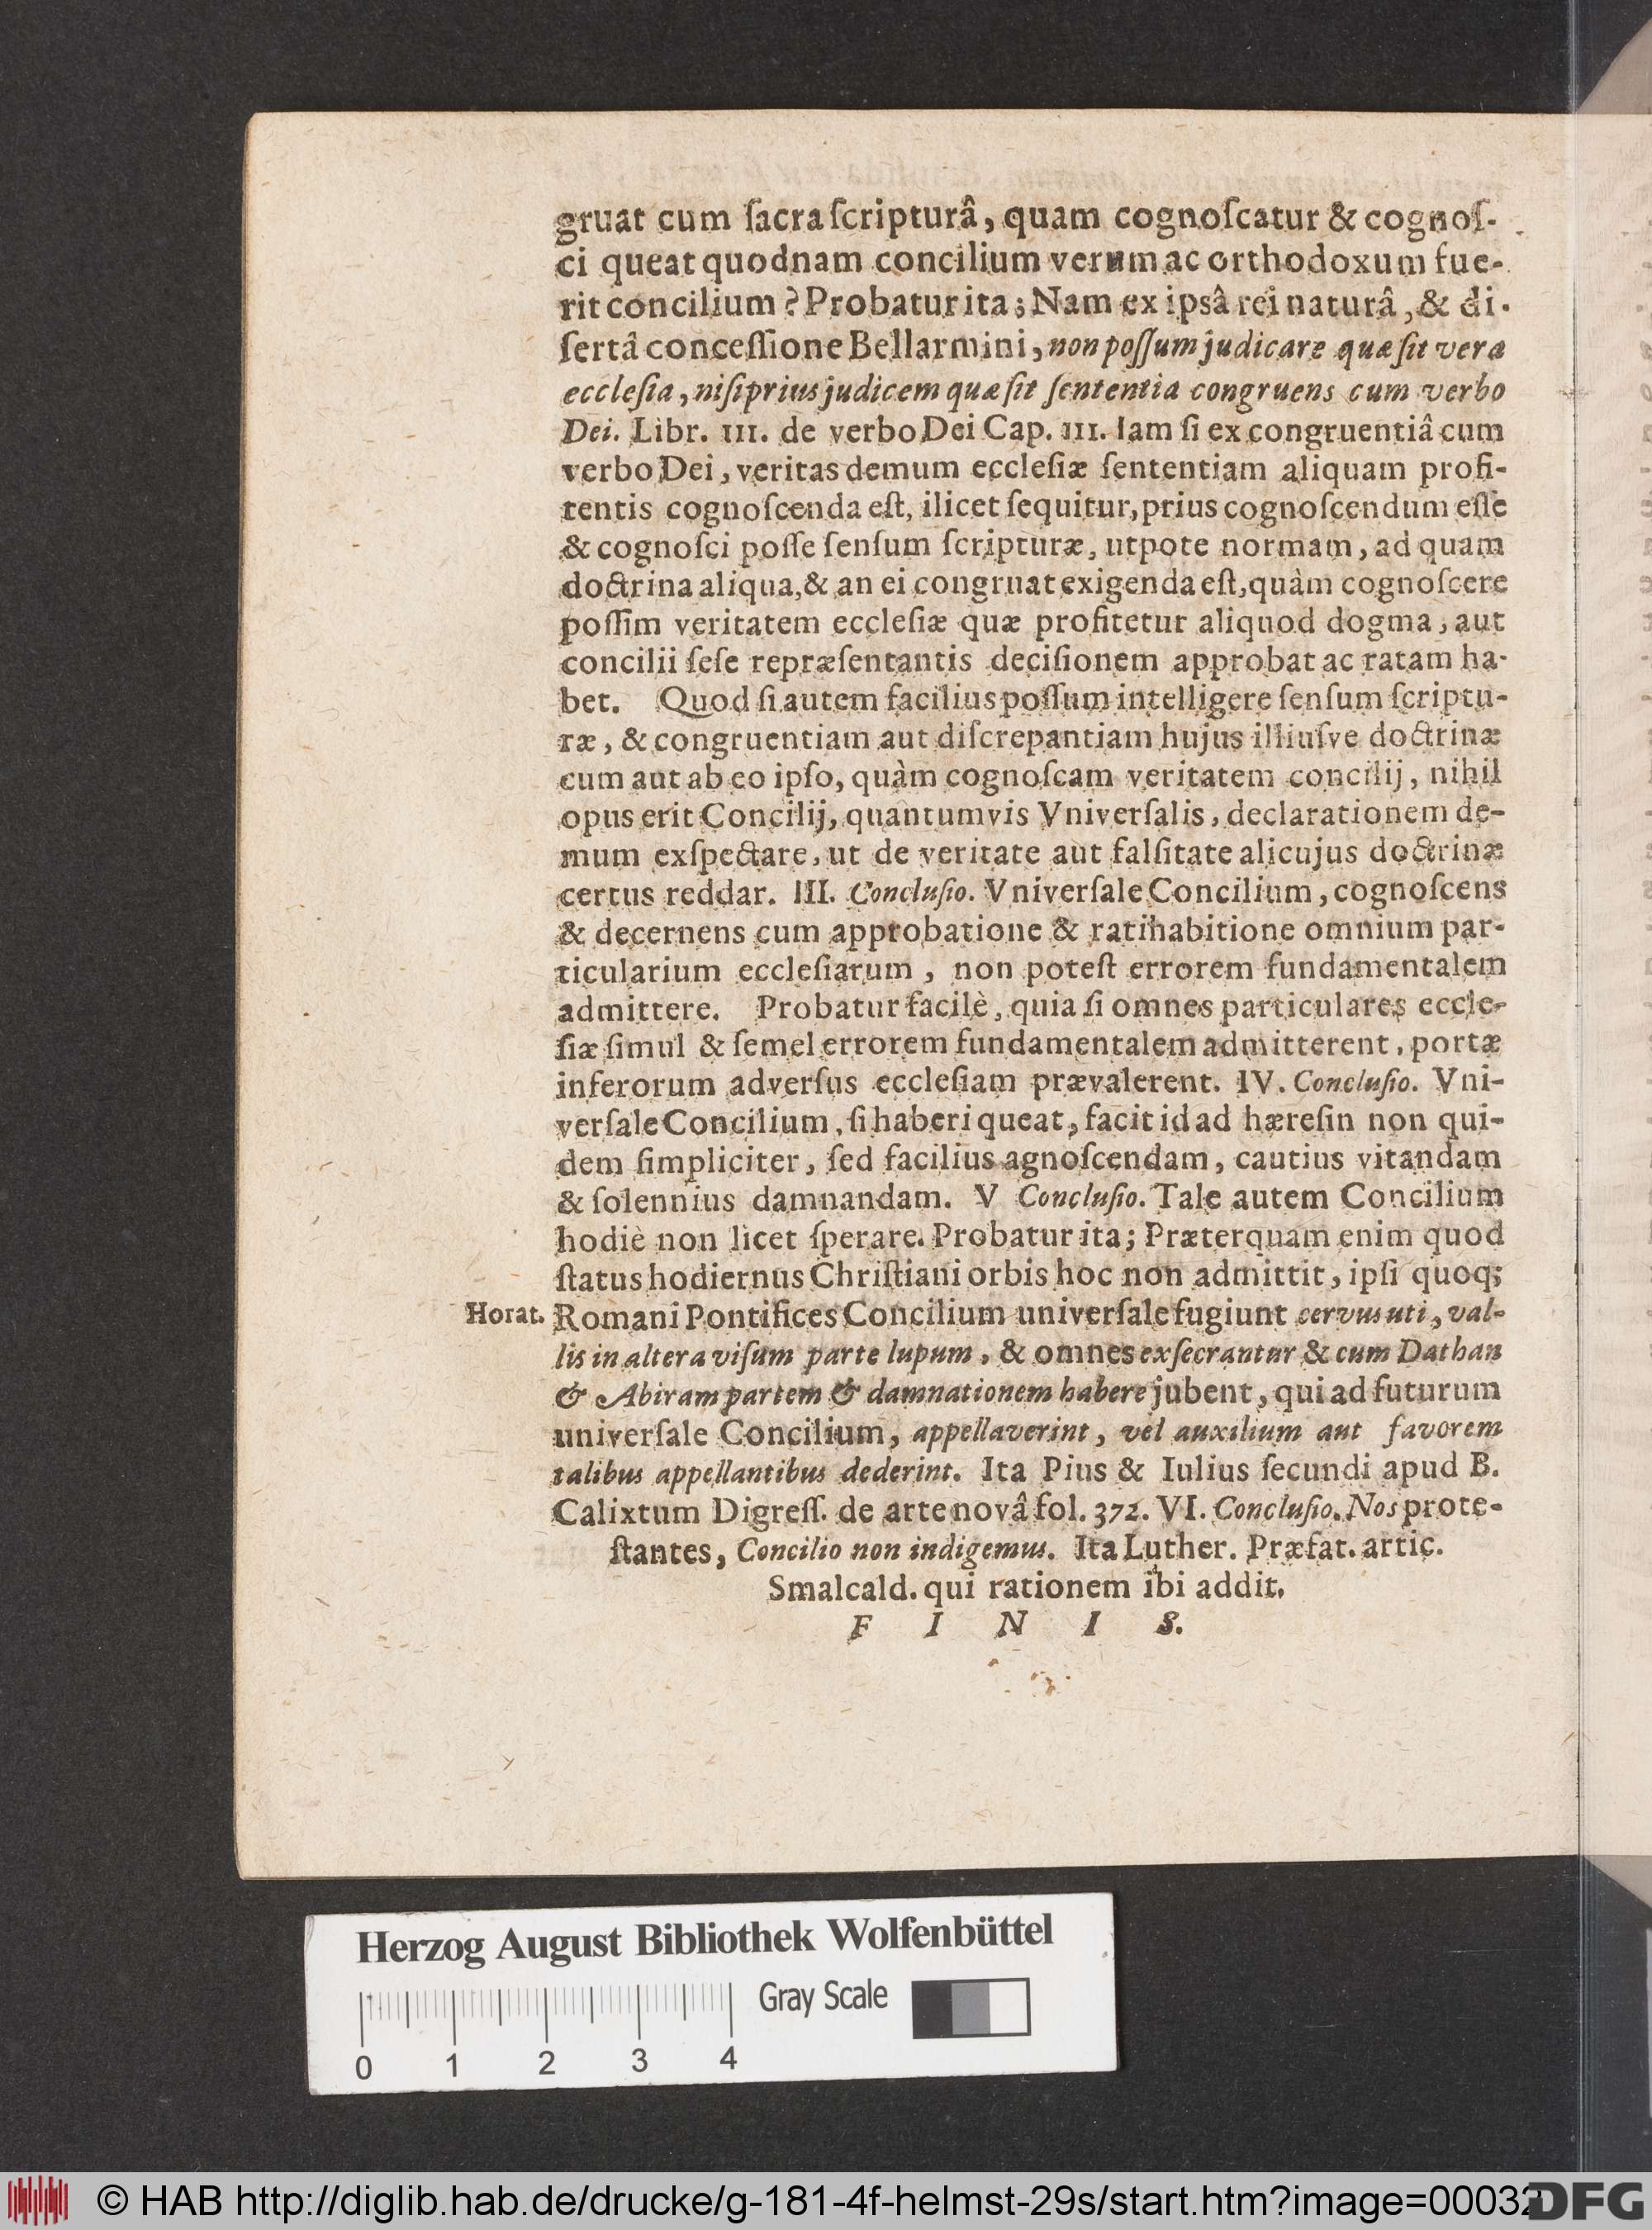 gruat cum ſacra ſcripturâ, quam cognoſcatur & cognoſ-
ci queat quodnam concilium verum ac orthodoxum fue-
rit concilium ? Probatur ita; Nam ex ipsâ rei naturâ, & di-
ſertâ conceſſione Bellarmini, non poſſum judicare quæ ſit vera
eccleſia, niſi prius judicem quæ ſit ſententia congruens cum verbo
Dei. Libr. III. de verbo Dei Cap. III. Iam ſi ex congruentiâ cum
verbo Dei, veritas demum eccleſiæ ſententiam aliquam profi-
tentis cognoſcenda eſt, ilicet ſequitur, prius cognoſcendum eſſe
& cognoſci poſſe ſenſum ſcripturæ, utpote normam, ad quam
doctrina aliqua, & an ei congruat exigenda eſt, quàm cognoſcere
poſſim veritatem eccleſiæ quæ profitetur aliquod dogma, aut
concilii ſeſe repræſentantis deciſionem approbat ac ratam ha-
bet. Quod ſi autem facilius poſſum intelligere ſenſum ſcriptu-
ræ, & congruentiam aut diſcrepantiam hujus illiuſve doctrinæ
cum aut ab eo ipſo, quàm cognoſcam veritatem concilij, nihil
opus erit Concilij, quantumvis Vniverſalis, declarationem de-
mum exſpectare, ut de veritate aut falſitate alicujus doctrinæ
certus reddar. III. Concluſio. Vniverſale Concilium, cognoſcens
& decernens cum approbatione & ratihabitione omnium par-
ticularium eccleſiarum, non poteſt errorem fundamentalem
admittere. Probatur facilè, quia ſi omnes particulares eccle-
ſiæ ſimul & ſemel errorem fundamentalem admitterent, portæ
inferorum adverſus eccleſiam prævalerent. IV. Concluſio. Vni-
verſale Concilium, ſi haberi queat, facit id ad hæreſin non qui-
dem ſimpliciter, ſed facilius agnoſcendam, cautius vitandam
& ſolennius damnandam. V Concluſio. Tale autem Concilium
hodiè non licet ſperare. Probatur ita; Præterquam enim quod
ſtatus hodiernus Chriſtiani orbis hoc non admittit, ipſi quoq;
Horat. Romani Pontifices Concilium univerſale fugiunt cervus uti, val-
lis in altera viſum parte lupum, & omnes exſecrantur & cum Dathan
& Abiram partem & damnationem habere jubent, qui ad futurum
univerſale Concilium, appellaverint, vel auxilium aut favorem
talibus appellantibus dederint. Ita Pius & Iulius ſecundi apud B.
Calixtum Digreſſ. de arte novâ fol. 372. VI. Concluſio. Nos prote-
ſtantes, Concilio non indigemus. Ita Luther. Præfat. artic.
Smalcald. qui rationem ibi addit.
F I N I S.
Herzog August Bibliothek Wolfenbüttel
Gray Scale
0 1 2 3 4
© HAB http://diglib.hab.de/drucke/g-181-4f-helmst-29s/start.htm?image=00032
DFG